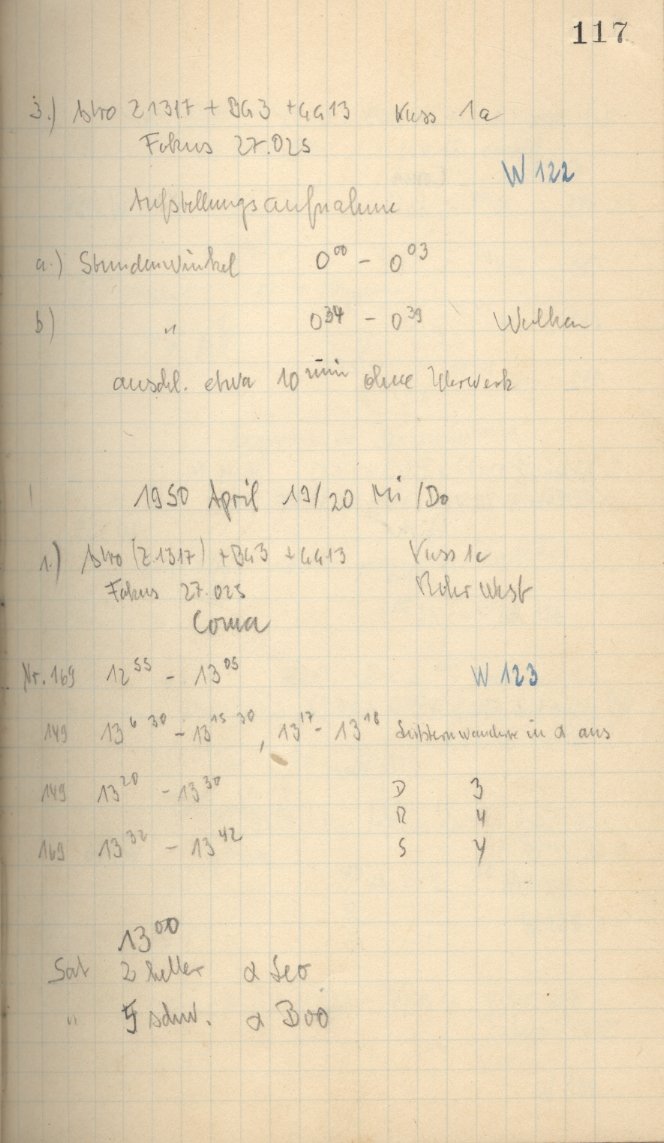 117
3.) Astro Z1317 + BG3 + GG13 Kass 1a
Fokus 27.025
W 122
Aufstellungsaufnahme
a.) Stundenwinkel 0⁰⁰ - 0⁰³
b) " 0³⁴ - 0³⁹ Wolken
auschl. etwa 10 min ohne Uhrwerk
1950 April 19/20 Mi/Do
1.) Astro (Z.1317) + BG3 + GG13 Kass 1c
Fokus 27.025 Rohr West
Coma
Nr. 169 12⁵⁵ - 13⁰⁵ W 123
149 13⁶ ³⁰ - 13¹⁵ ³⁰, 13¹⁷ - 13¹⁸ in α aus
149 13²⁰ - 13³⁰ D 3
R 4
169 13³² - 13⁴² S 4
13⁰⁰
Sat 2 heller α Leo
" 5 schw. α Boo